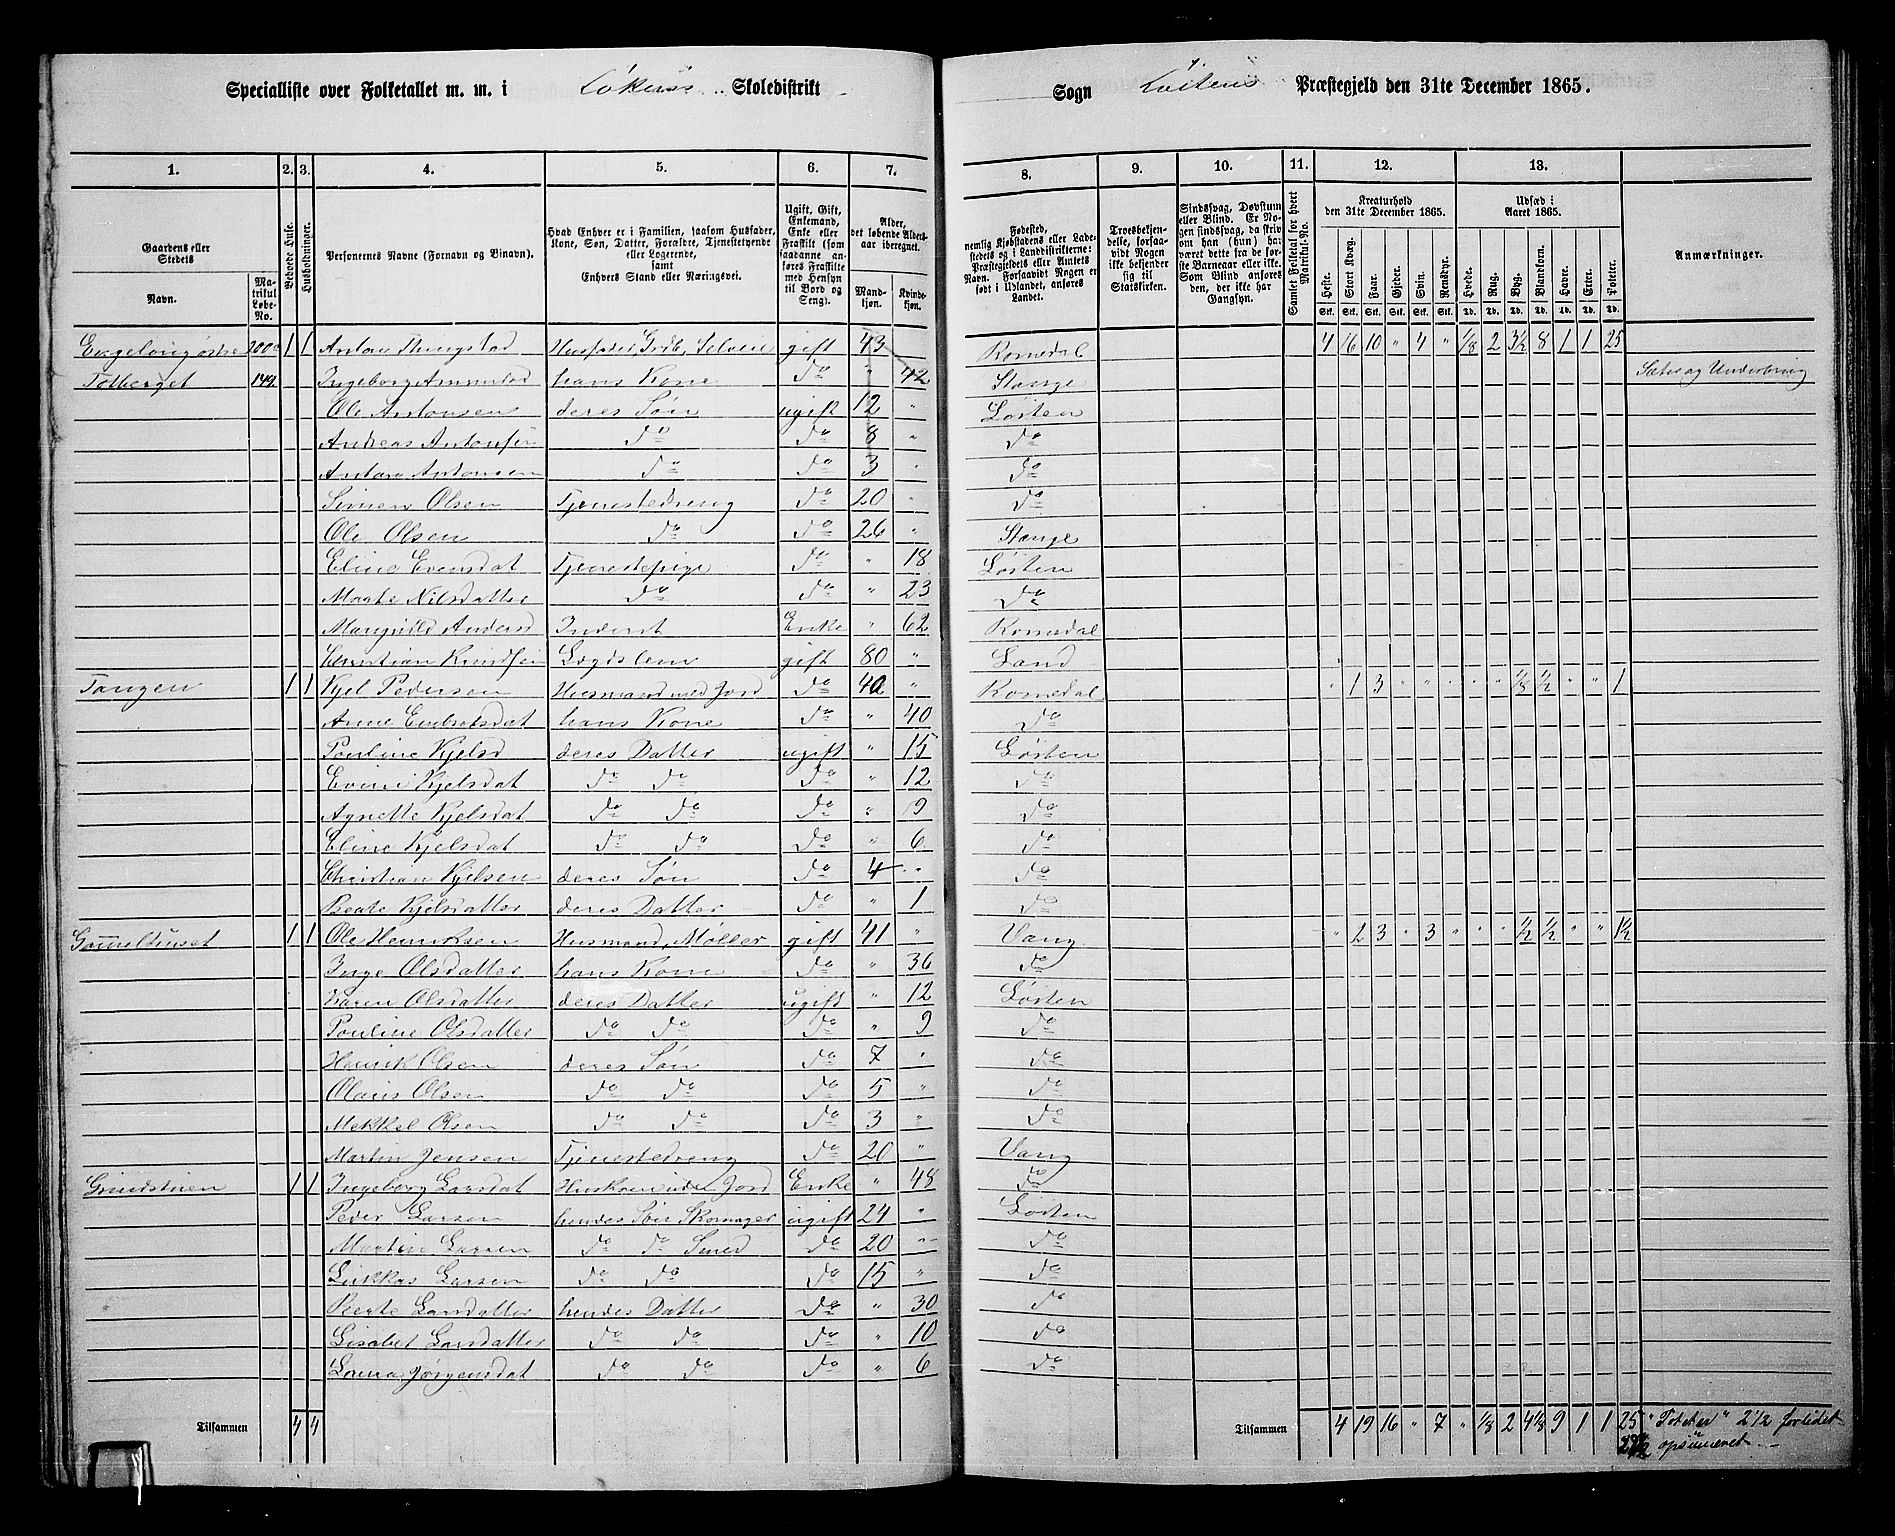 Specialliste over Folketallet m. m. i Løkens Skoledistrikt
Sogn Løitens Præstegjeld den 31te December 1865.
1. 2. 3. 4. 5. 6. 7.
8. 9. 10. 11. 12. 13.
Gaardens eller Stedets
Navn.
Matrikul Løbe-No.
Beboede Huse.
Husholdninger.
Personernes Navne (Fornavn og Binavn).
Hvad Enhver er i Familien, saasom Husfader, Kone, Søn, Datter, Forældre, Tjenestetyende eller Logerende, samt Enhvers Stand eller Næringsvei.
Ugift, Gift, Enkemand, Enke eller Fraskilt (som saadanne anføres Fraskilte med Hensyn til Bord og Seng).
Alder, det løbende Alders-aar iberegnet.
Mandkjøn. Kvindekjøn.
Fødested, nemlig Kjøbstadens eller Ladestedets og i Landdistrikterne: Præstegjeldets eller Amtets Navn. Forsaavidt Nogen er født i Udlandet, anføres Landet.
Troesbekjendelse, forsaavidt Nogen ikke bekjender sig til Statskirken.
Sindssvag, Døvstum eller Blind. Er Nogen sindssvag, da skrives om han (hun) har været dette fra de første Barneaar eller ikke. Som Blind anføres den, der ikke har Gangsyn.
Samlet Folketal for hvert Matrikul-No.
Kreaturhold den 31te December 1865.
Heste. Stort Kvæg. Faar. Gjeder. Svin. Rensdyr.
Udsæd i Aaret 1865.
Hvede. Rug. Byg. Blandkorn. Havre. Erter. Poteter.
Stk. Stk. Stk. Stk. Stk. Stk. Td. Td. Td. Td. Td. Td. Td.
Anmærkninger.
200 1 1 Anton Thingstad Husfader Grdb, Selveie gift 43 Romedal 4 16 10 " 4 " 1/8 2 3 1/2 8 1 1 25
Tolberget 149 Ingeborg Amundsd hans Kone do " 42 Stange Sæter og Underbrug
Ole Antonsen deres Søn ugift 12 " Løiten
Andreas Antonsen do do 8 " do
Anton Antonsen do do 3 " do
Simen Olsen Tjenestedreng do 20 " do
Ole Olsen do do 26 " Stange
Eline Evensdat Tjenestepige do " 18 Løiten
Marte Nilsdatter do do " 23 do
Andersd Inderst Enke " 62 Romedal
Christian Knudsen Lægdslem gift 80 " Land
Tangen 1 1 Kjel Pedersen Husmand med Jord do 40 " Romedal " 1 3 " " " " " 1/8 1/2 " " 1
Anne Embretsdat hans Kone do " 40 do
Pauline Kjelsd deres Datter ugift " 15 Løiten
Evine Kjelsdat do do do " 12 do
Agnette Kjelsdat do do do " 9 do
Eline Kjelsdat do do do " 6 do
Christian Kjelsen deres Søn do 4 " do
Beate Kjelsdatter deres Datter do " 1 do
Gammelhuset 1 1 Ole Henriksen Husmand, Møller gift 41 " Vang " 2 3 " 3 " " " 1/2 1/2 " " 1 1/2
Inge Olsdatter hans Kone do " 36 do
Karen Olsdatter deres Datter ugift " 12 Løiten
Pauline Olsdatter do do do " 9 do
Henrik Olsen deres Søn do 7 " do
Olaus Olsen do do do 5 " do
Mekkel Olsen do do do 3 " do
Martin Jensen Tjenestedreng do 20 " Vang
Grindstuen 1 1 Ingeborg Larsdat Huskone uden Jord Enke " 48 do
Peder Larsen hendes Søn Skomager ugift 24 " Løiten
Martin Larsen do do Smed do 20 " do
Lukkas Larsen do do do 15 " do
Beate Larsdatter hendes Datter do " 30 do
Lisabet Larsdatter do do do " 10 do
Lovisa Jørgensdat do do do " 6 do
Tilsammen 4 4
Tilsammen 4 19 16 " 7 " 1/8 2 4 1/8 9 1 1 25 "Poteter" 2 1/2 forbidet
27 1/2 opsumeret